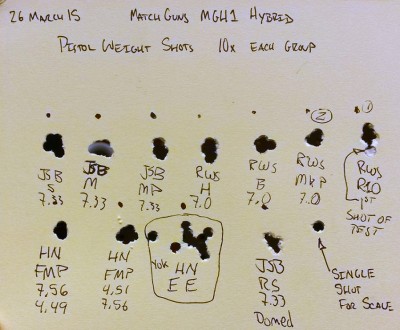 26 March 15 Match Guns MGH1 Hybrid
Pistol Weight Shots 10x Each Group
② ①
JSB
S
7.33
JSB
M
7.33
JSB
MP
7.33
RWS
H
7.0
RWS
B
7.0
RWS
MKP
7.0
RWS
R10
1st
SHOT OF
TEST
HN
FMP
7.56
4.49
HN
FMP
4.51
7.56
HN
EE
JSB
RS
7.33
Domed
SINGLE
SHOT
FOR SCALE